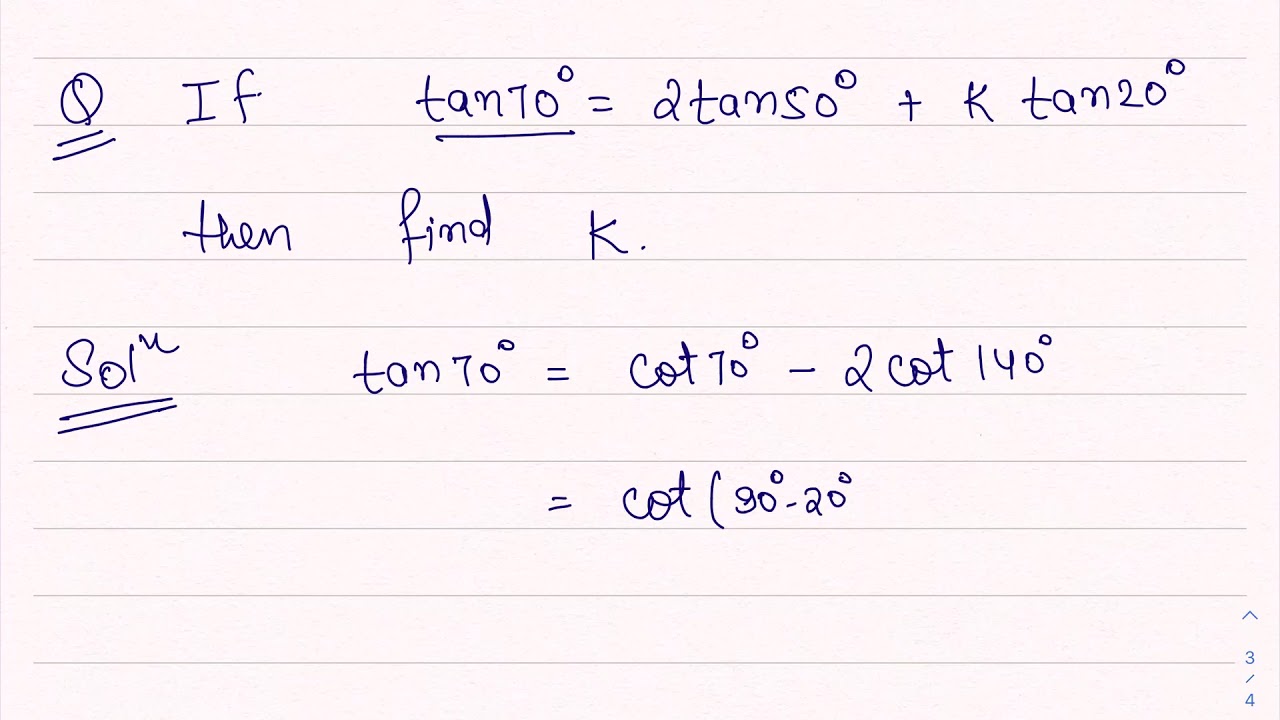 Q If tan70° = 2tan50° + K tan20°
then find K.
Solⁿ tan70° = cot70° - 2cot140°
= cot(90°-20°
3
/
4